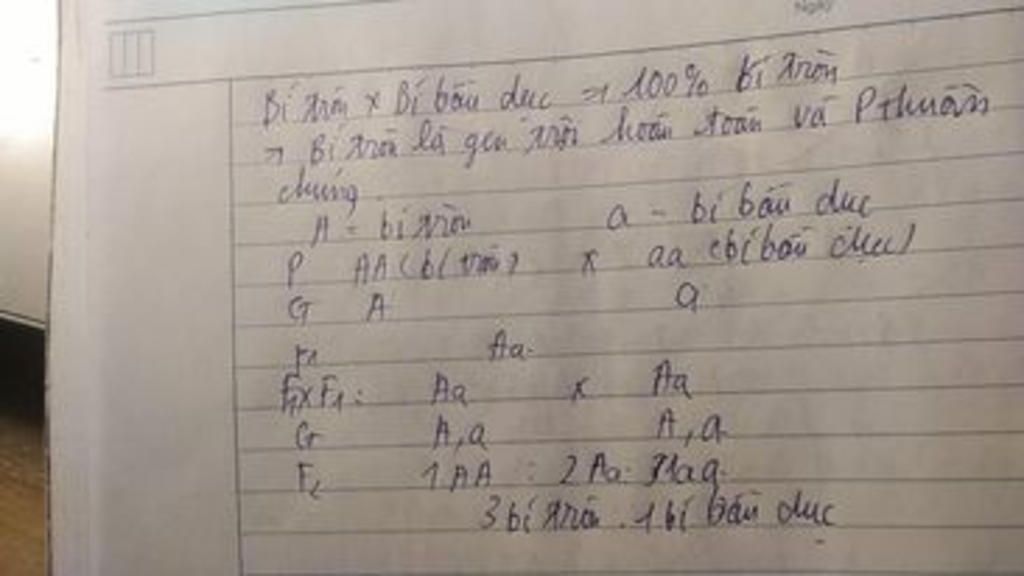 Ngày
Bí tròn x Bí bầu dục => 100% Bí tròn
=> Bí tròn là gen trội hoàn toàn và P thuần
chủng.
A - bí tròn a - bí bầu dục
P AA (bí tròn) x aa (bí bầu dục)
G A a
F1 Aa.
F1xF1: Aa x Aa
G A, a A, a
F2 1AA : 2Aa : 1aa
3 bí tròn . 1 bí bầu dục